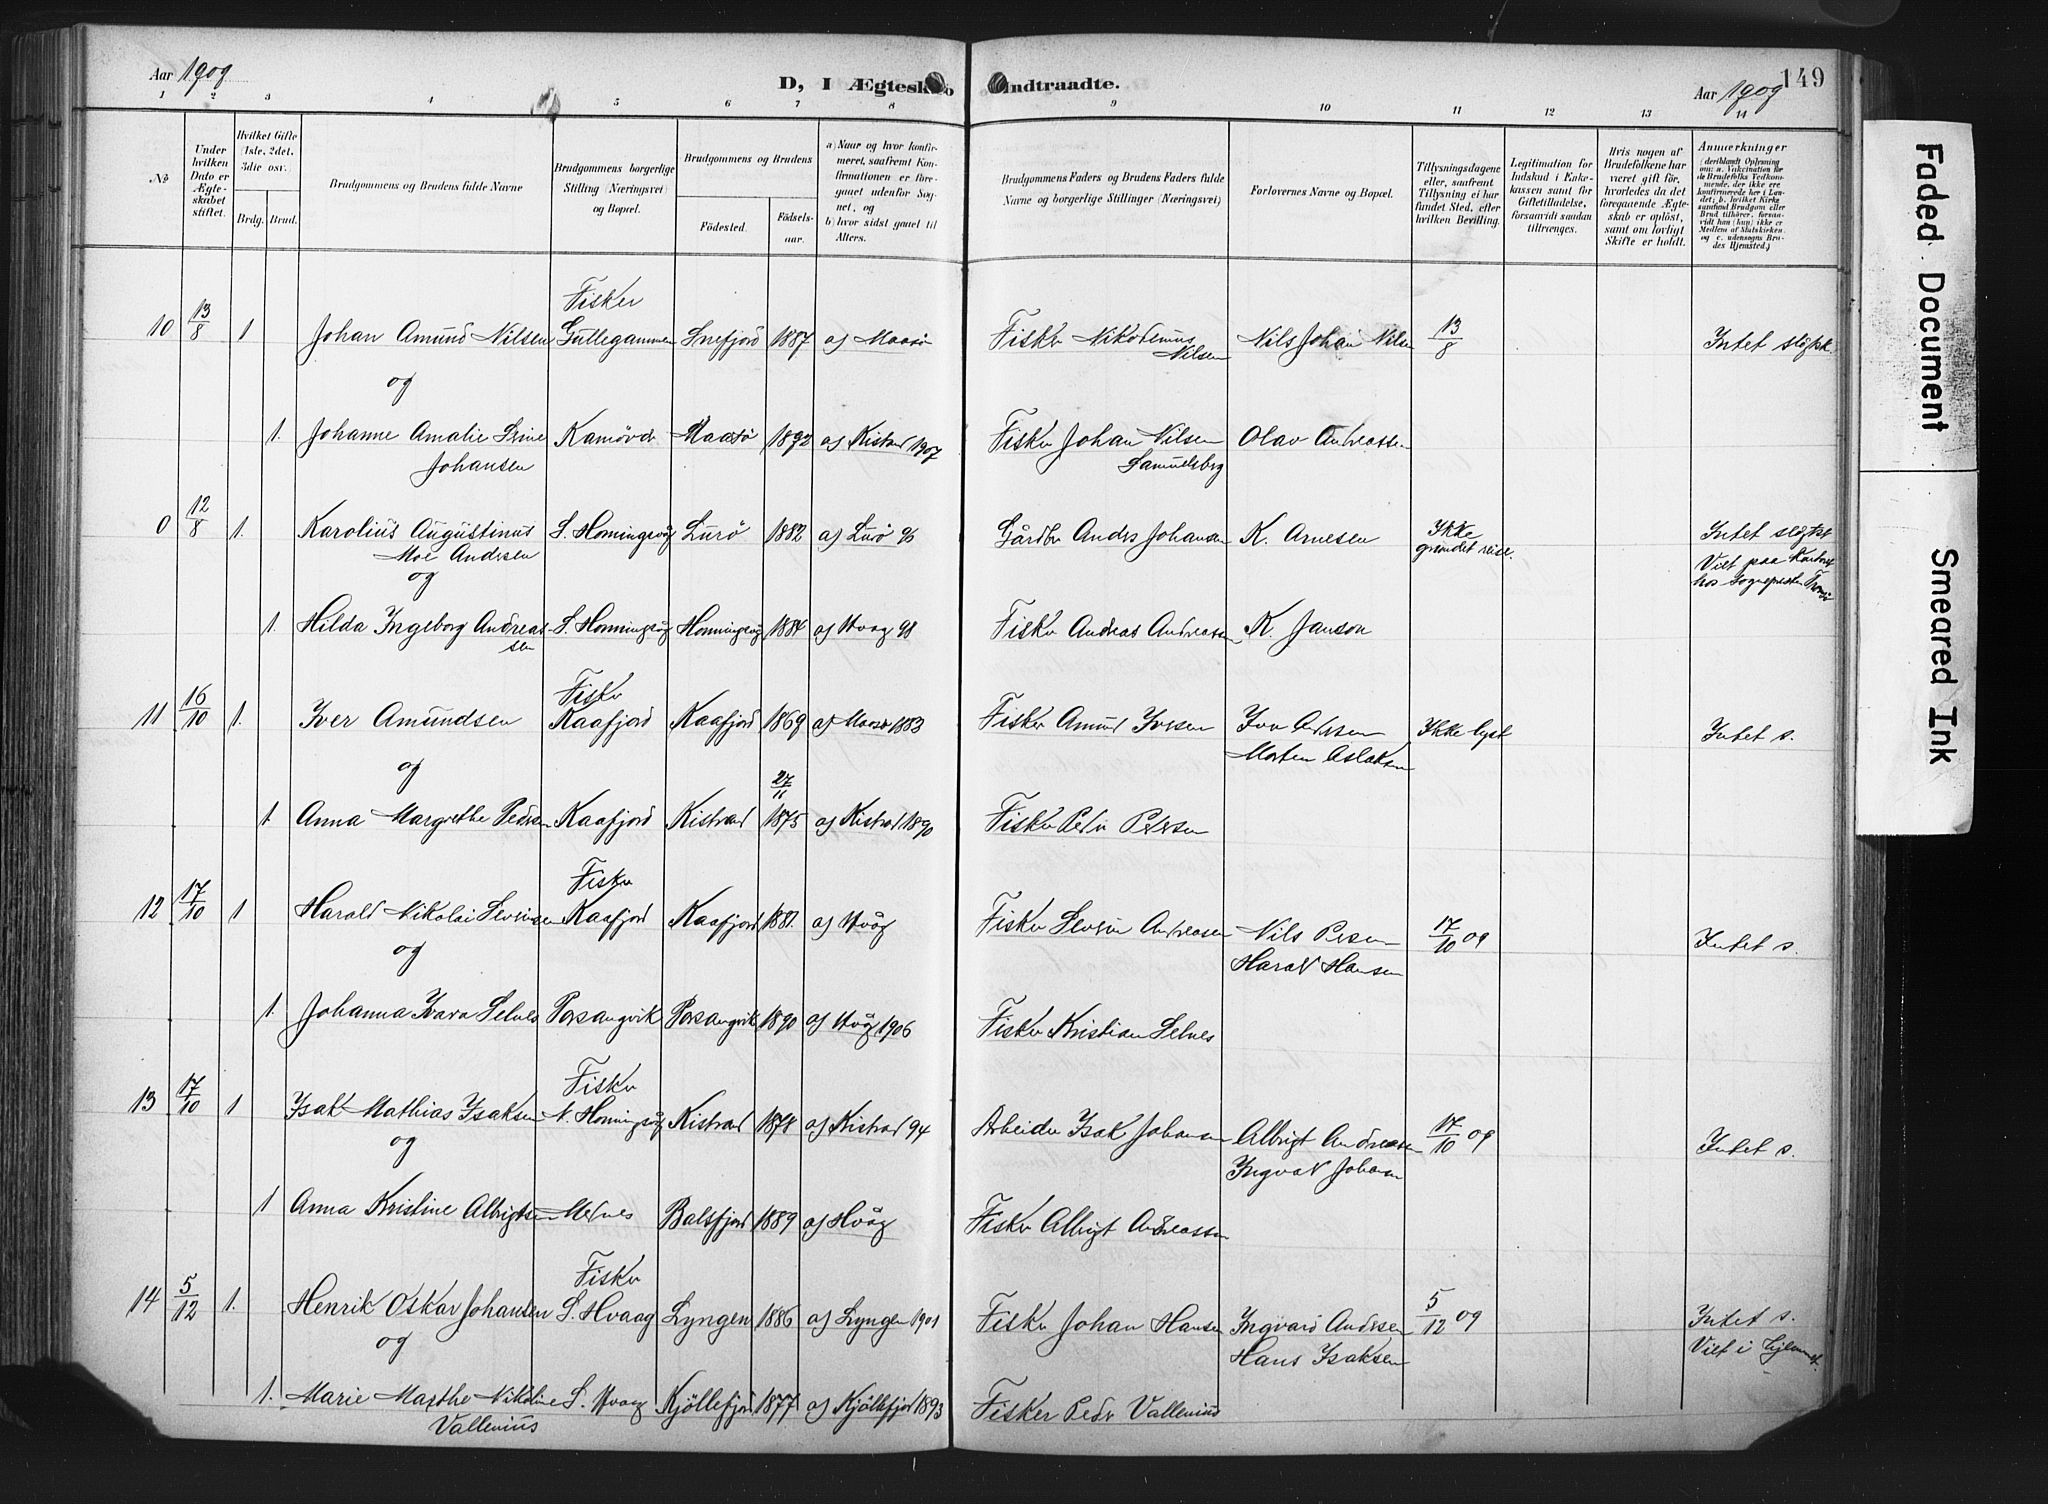 Aar 1909
D, I Ægteskab Indtraadte.
Aar 1909
149
1 2 3 4 5 6 7 8 9 10 11 12 13 14
No
Under hvilken Dato er Ægteskabet stiftet.
Hvilket Gifte (1ste, 2det, 3die osv.)
Brdg. Brud.
Brudgommens og Brudens fulde Navne
Brudgommens borgerlige Stilling (Næringsvei) og Bopæl.
Brudgommens og Brudens
Fødested.
Fødselsaar.
a) Naar og hvor konfirmeret, saafremt Konfirmationen er foregaaet udenfor Sognet, og
b) hvor sidst gaaet til Alters.
Brudgommens Faders og Brudens Faders fulde Navne og borgerlige Stillinger (Næringsvei)
Forlovernes Navne og Bopæl.
Tillysningsdagene eller, saafremt Tillysning ei har fundet Sted, efter hvilken Bevilling.
Legitimation for Indskud i Enkekassen samt for Giftetilladelse, forsaavidt saadan tiltrænges.
Hvis nogen af Brudefolkene har været gift før, hvorledes da det foregaaende Ægteskab er opløst, samt om lovligt Skifte er holdt.
Anmærkninger
(deriblandt Oplysning om: a. Vaksination for de Brudefolks Vedkommende, der ikke ere konfirmerede her i Landet; b. hvilket Kirkesamfund Brudgom eller Brud tilhører, forsaavidt han (hun) ikke er Medlem af Statskirken og c. udensogns Brudes Hjemsted.)
Fisker
10 13/8 1 Johan Amund Nilsen Gullegammen Snefjord 1887 a) Maasø Fisker Nikodemus Nilsen Nils Johan Nilsen 13/8 Intet slægtsk.
og
1. Johanne Amalie Johansen Kamøvær Maasø 1892 a) Kistrand 1907 Fisker Johan Nilsen Samuelsberg Olav Andreassen
0 12/8 1. Karolius Augustinus Moe Andersen S. Honningsvåg Lurø 1882 a) Lurø 96 Gårdbr Anders Johansen K. Arnesen Ikke grundet reise. Intet slægtsk
Viet paa Kontoret hos Sognepresten Tromsø
og
1. Hilda Ingeborg Andreassen S. Honningsvåg Honningsvåg 1884 a) Hvaag 98 Fisker Andreas Andreassen K. Janson
Fisker
11 16/10 1. Iver Amundsen Kaafjord Kaafjord 1869 a) Maasø 1883 Fisker Amund Iversen Morten Aslaksen Ikke lyst Intet s.
og
27/11
1. Anna Margrethe Pedersen Kaafjord Kistrand 1875 a) Kistrand 1890 Fisker Peder Pedersen
Fisker
12 17/10 1 Harald Nikolai Severinsen Kaafjord Kaafjord 1881. a) Hvåg Fisker Severin Andreasen Nils Persen 17/10 09 Intet s.
Harald Hansen
og
1. Johanna Ivara Selnes Porsangvik Porsangvik 1890 a) Hvåg 1906 Fisker Kristian Selnes
Fisker
13 17/10 1 Isak Mathias Isaksen N. Honningsvåg Kistrand 1878 a) Kistrand 94 Arbeider Isak Johansen Albrigt Andreassen 17/10 09 Intet s.
Ingvald Johansen
og
1 Anna Kristine Albrigtsen Mefnes Balsfjord 1889 a) Hvåg Fisker Albrigt Andreassen
Fisker
14 5/12 1. Henrik Oskar Johansen S. Hvaag Lyngen 1886 a) Lyngen 1901 Fisker Johan Hansen Ingvard Andersen 5/12 09 Intet s.
Hans Isaksen Viet i Hjemmet.
og
1. Marie Marthe Nikoline Vallenius S. Hvaag Kjøllefjord 1877 a) Kjøllefjord 1893 Fisker Peder Vallenius
Faded Document
Smeared Ink